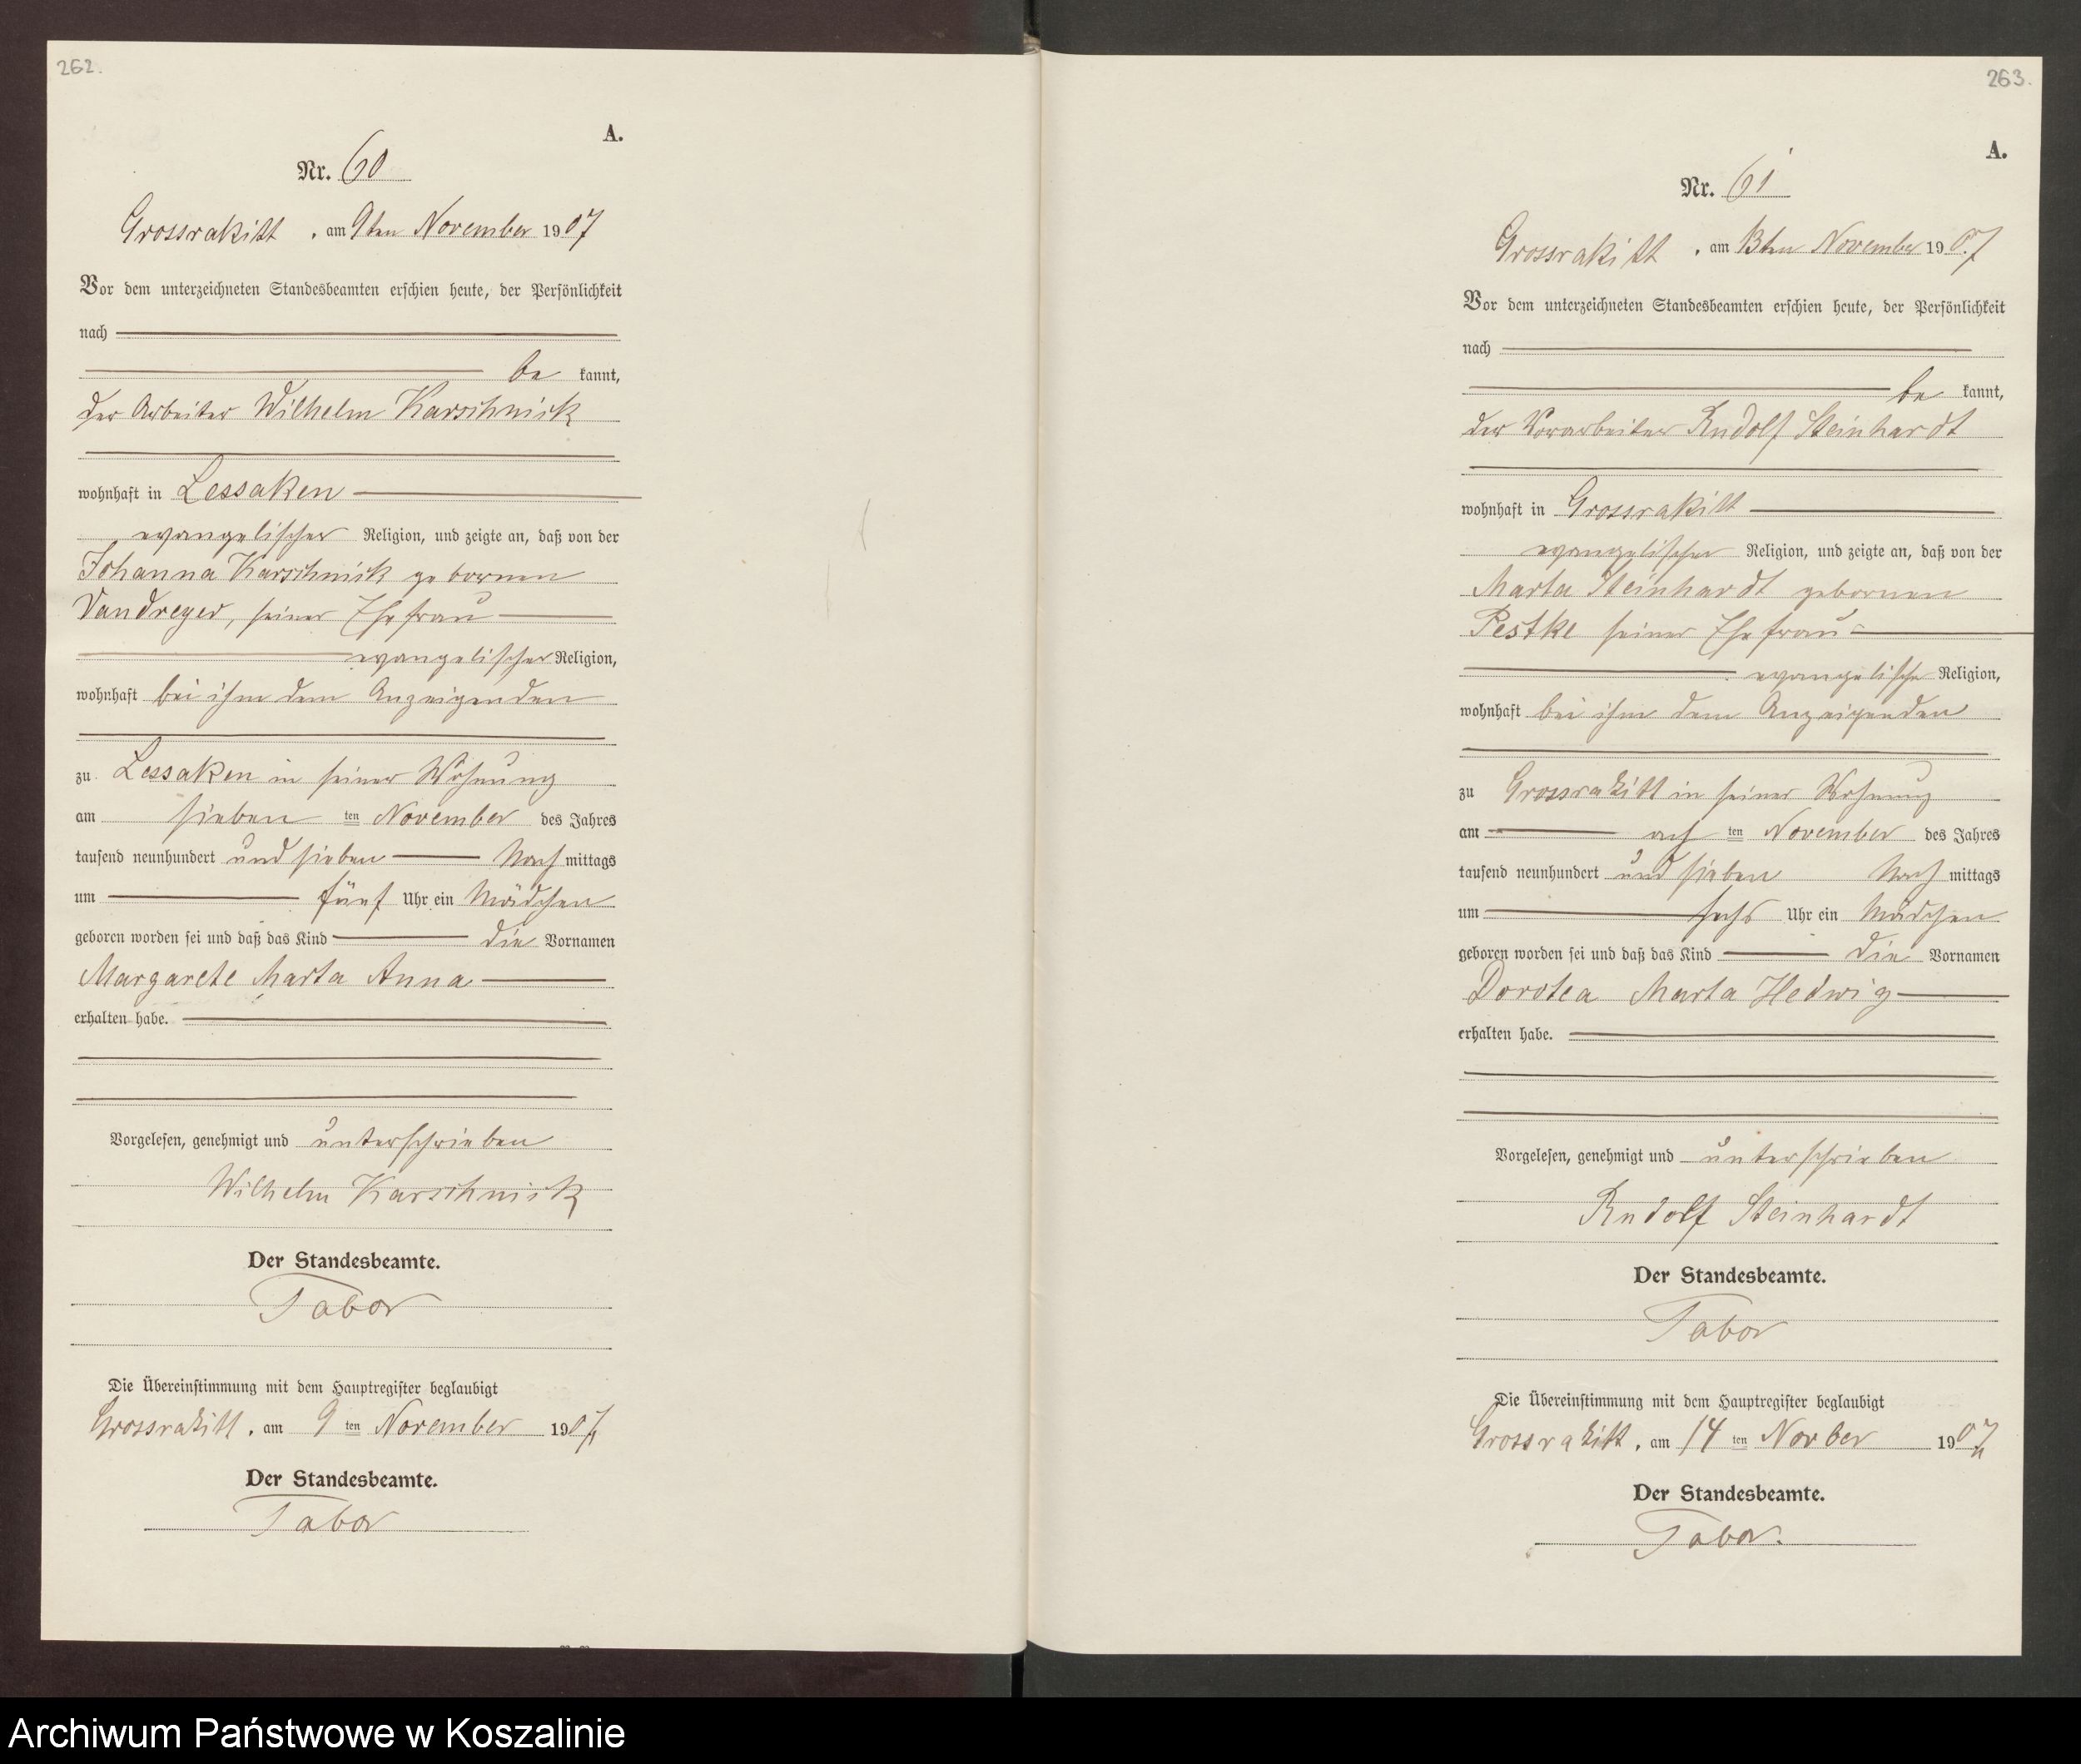 262.
A.
Nr. 60
Grossrakitt, am 9ten November 1907
Vor dem unterzeichneten Standesbeamten erschien heute, der Persönlichkeit
nach
be kannt,
der Arbeiter Wilhelm Karschnick
wohnhaft in Lessaken
evangelischer Religion, und zeigte an, daß von der
Johanna Karschnick gebornen
Vandreyer, seiner Ehefrau
evangelischer Religion,
wohnhaft bei ihm dem Anzeigenden
zu Lessaken in seiner Wohnung
am sieben ten November des Jahres
tausend neunhundert und sieben Nach mittags
um fünf Uhr ein Mädchen
geboren worden sei und daß das Kind die Vornamen
Margarete Marta Anna
erhalten habe.
Vorgelesen, genehmigt und unterschrieben
Wilhelm Karschnick
Der Standesbeamte.
Tabor
Die Übereinstimmung mit dem Hauptregister beglaubigt
Grossrakitt, am 9 ten November 1907
Der Standesbeamte.
Tabor
263.
A.
Nr. 61
Grossrakitt, am 13ten November 1907
Vor dem unterzeichneten Standesbeamten erschien heute, der Persönlichkeit
nach
be kannt,
der Vorarbeiter Rudolf Steinhardt
wohnhaft in Grossrakitt
evangelischer Religion, und zeigte an, daß von der
Marta Steinhardt gebornen
Pestke seiner Ehefrau
evangelische Religion,
wohnhaft bei ihm dem Anzeigenden
zu Grossrakitt in seiner Wohnung
am ach ten November des Jahres
tausend neunhundert und sieben Nach mittags
um sechs Uhr ein Mädchen
geboren worden sei und daß das Kind die Vornamen
Dorotea Marta Hedwig
erhalten habe.
Vorgelesen, genehmigt und unterschrieben
Rudolf Steinhardt
Der Standesbeamte.
Tabor
Die Übereinstimmung mit dem Hauptregister beglaubigt
Grossrakitt, am 14 ten Novber 1907
Der Standesbeamte.
Tabor.
Archiwum Państwowe w Koszalinie